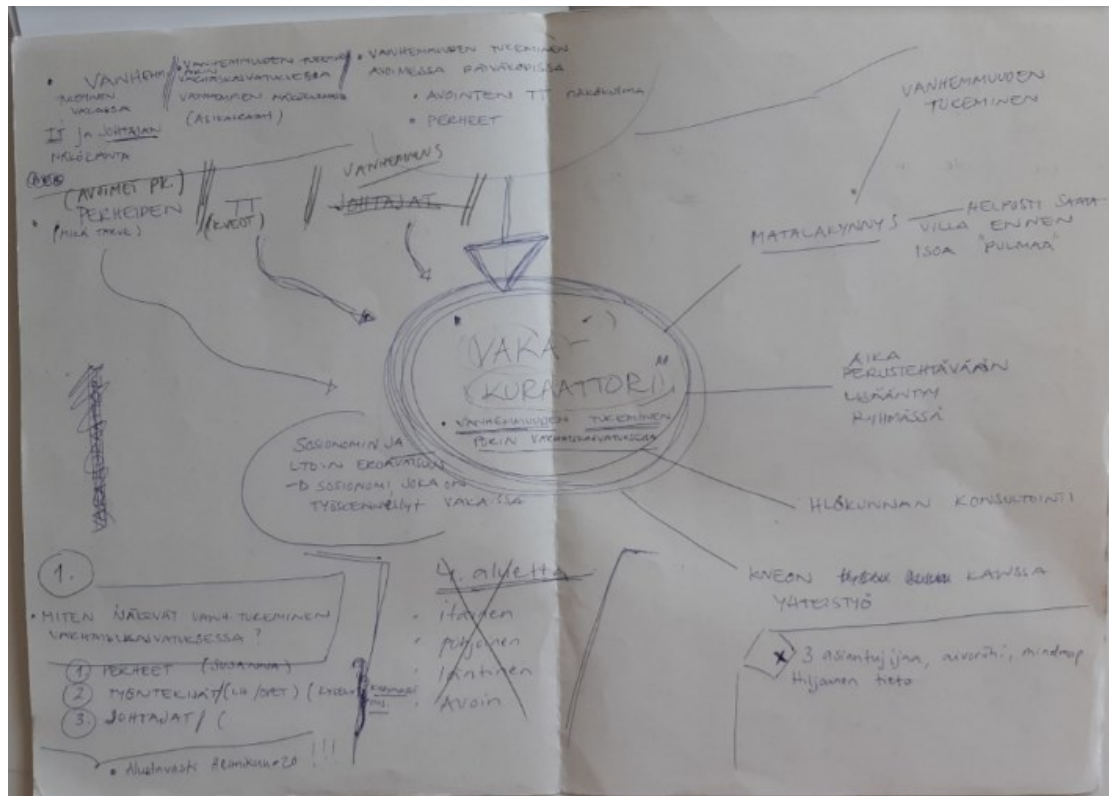 • VANHEMM
VANHEMMUUDEN TUKEMINEN
VARHAISKASVATUKSESSA
VANHEMPIEN NÄKÖKULMA
• VANHEMMUUDEN TUKEMINEN
AVOIMESSA PÄIVÄKODISSA
• AVOINTEN TT NÄKÖKULMA
• PERHEET
TT ja JOHTAJAN
NÄKÖKANTA
(AVOIMET PK.)
PERHEIDEN
(MIKÄ TARVE)
TT
VANHEMMUUS
JOHTAJAT
VANHEMMUUDEN
TUKEMINEN
MATALAKYNNYS — HELPOSTI SAATA-
VILLA ENNEN
ISOA "PULMAA"
"VAKA-
KURAATTORI"
• VANHEMMUUDEN TUKEMINEN
PORIN VARHAISKASVATUKSESSA
AIKA
PERUSTEHTÄVÄÄN
LISÄÄNTYY
RYHMÄSSÄ
SOSIONOMIN JA
LTO:N EROAVAISUUS
→ SOSIONOMI, JOKA ON
TYÖSKENNELLYT VAKASSA
VAKAKURAATTORI
HLÖKUNNAN KONSULTOINTI
KVEON KANSSA
YHTEISTYÖ
1.
• MITEN NÄKEVÄT VANH. TUKEMINEN
VARHAISKASVATUKSESSA?
1 PERHEET (SUSANNA)
2 TYÖNTEKIJÄT/
3. JOHTAJAT/ (
• Alustavasti Helmikuu-20 !!!
4. aluetta
• itäinen
• pohjoinen
• läntinen
• Avoin
x 3 asiantuntijaa, aivoriihi, mindmap
Hiljainen tieto